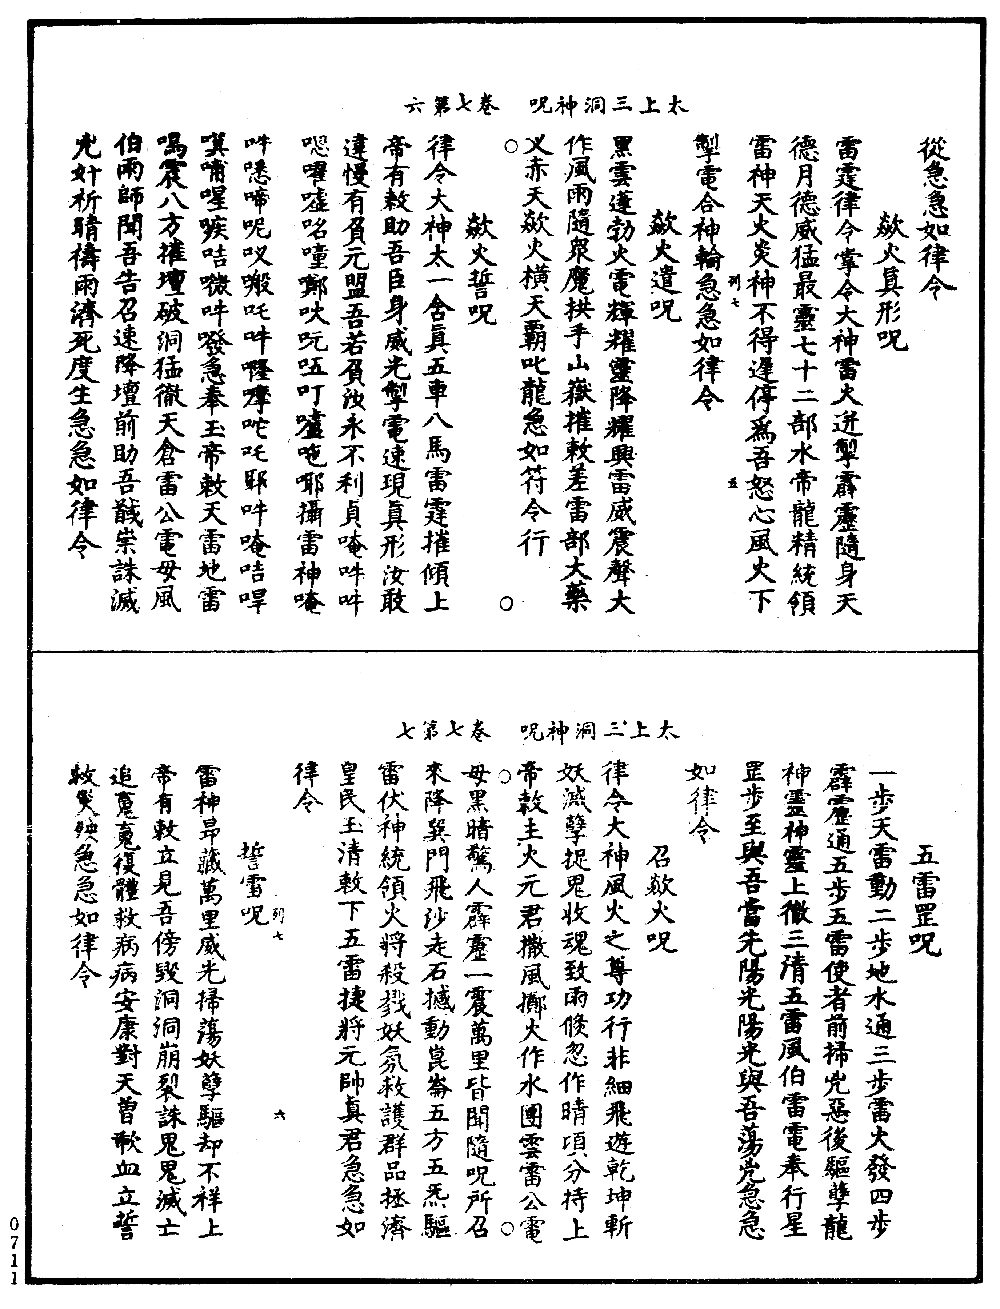 太上三洞神呪　卷七第六
從急急如律令
歘火真形呪
雷霆律令掌令大神雷火迸掣霹靂隨身天
德月德威猛最靈七十二部水帝龍精統領
雷神天火炎神不得遲停爲吾怒心風火下
掣電合神輪急急如律令
歘火遣呪
黑雲蓬勃火電輝耀靈降耀興雷威震聲大
作風雨隨衆魔拱手山嶽摧敕差雷部大藥
叉赤天歘火橫天霸叱龍急如符令行
歘火誓呪
律令大神太一含真五車八馬雷霆摧傾上
帝有敕助吾臣身威光掣電速現真形汝敢
違慢有負元盟吾若負汝永不利貞唵吽吽
嚧咜耶攝雷神唵
吽
急奉玉帝敕天雷地雷
喝震八方摧壇破洞猛徹天倉雷公電母風
伯雨師聞吾告召速降壇前助吾馘祟誅滅
兇奸祈晴禱雨濟死度生急急如律令
列七
五
太上三洞神呪　卷七第七
五雷罡呪
一步天雷動二步地水通三步雷火發四步
霹靂通五步五雷使者前掃兇惡後驅孽龍
神靈神靈上徹三清五雷風伯雷電奉行星
罡步至與吾當先陽光陽光與吾蕩兇急急
如律令
召歘火呪
律令大神風火之尊功行非細飛遊乾坤斬
妖滅孽捉鬼收魂致雨倏忽作晴項分持上
帝敕主火元君撒風擲火作水團雲雷公電
母黑暗驚人霹靂一震萬里皆聞隨呪所召
來降巽門飛沙走石撼動崑崙五方五炁驅
雷伏神統領火將殺戮妖氛救護群品拯濟
皇民玉清敕下五雷捷將元帥真君急急如
律令
誓雷呪
雷神昂藏萬里威光掃蕩妖孽驅却不祥上
帝有敕立見吾傍毀洞洞崩裂誅鬼鬼滅亡
追䰟䰟復體救病病安康對天曾歃血立誓
救災殃急急如律令
列七
六
0711